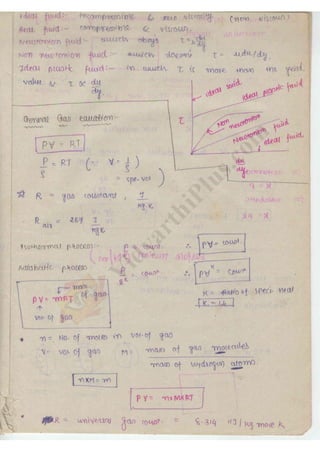 Ideal fluid:- Incompressible & non viscosity (non viscous)
Real fluid- compressible & viscous.
Newtonion fluid- which obeys τ ∝ du/dy
Non newtonion fluid- which doesn't τ = udu/dy.
Ideal plastic fluid:- in which τ is more than the yield
value & τ ∝ du/dy
ideal solid
ideal plastic fluid
τ
Non newtonion
Newtonion fluid
ideal fluid
du/dy
General Gas Equation:-
P∀ = RT
P/ρ = RT (∵ ∀ = 1/ρ = spe. vol)
R = gas constant, J/kg.K
R air = 287 J/kg.K
Isothermal process:- P/ρ = const ∴ P∀ = const
Adiabatic process P/ρᴷ = const ∴ P∀ᴷ = const
K = Ratio of speci heat
K = 1.4
mass of gas
P∀ = mRT
vol of gas
n = No. of moles in vol. of gas
∀ = vol of gas M = mass of gas molecules
mass of hydrogen atoms
nxM = m
P∀ = nxMxRT
R = universal gas const. = 8.314 KJ/kg mole K
VidyarthiPlus.com